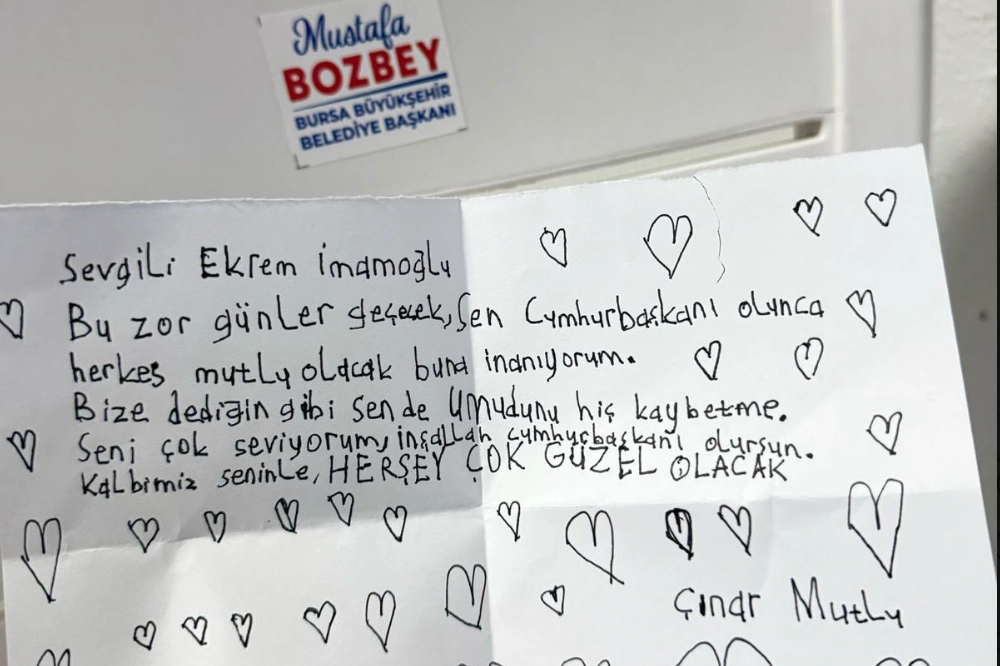 Mustafa
BOZBEY
BURSA BÜYÜKŞEHİR
BELEDİYE BAŞKANI
Sevgili Ekrem İmamoğlu
Bu zor günler geçecek, Sen Cumhurbaşkanı olunca
herkes mutlu olacak buna inanıyorum.
Bize dediğin gibi sende Umudunu hiç kaybetme.
Seni çok seviyorum, inşallah cumhurbaşkanı olursun.
Kalbimiz seninle, HERŞEY ÇOK GÜZEL OLACAK
Çınar Mutlu